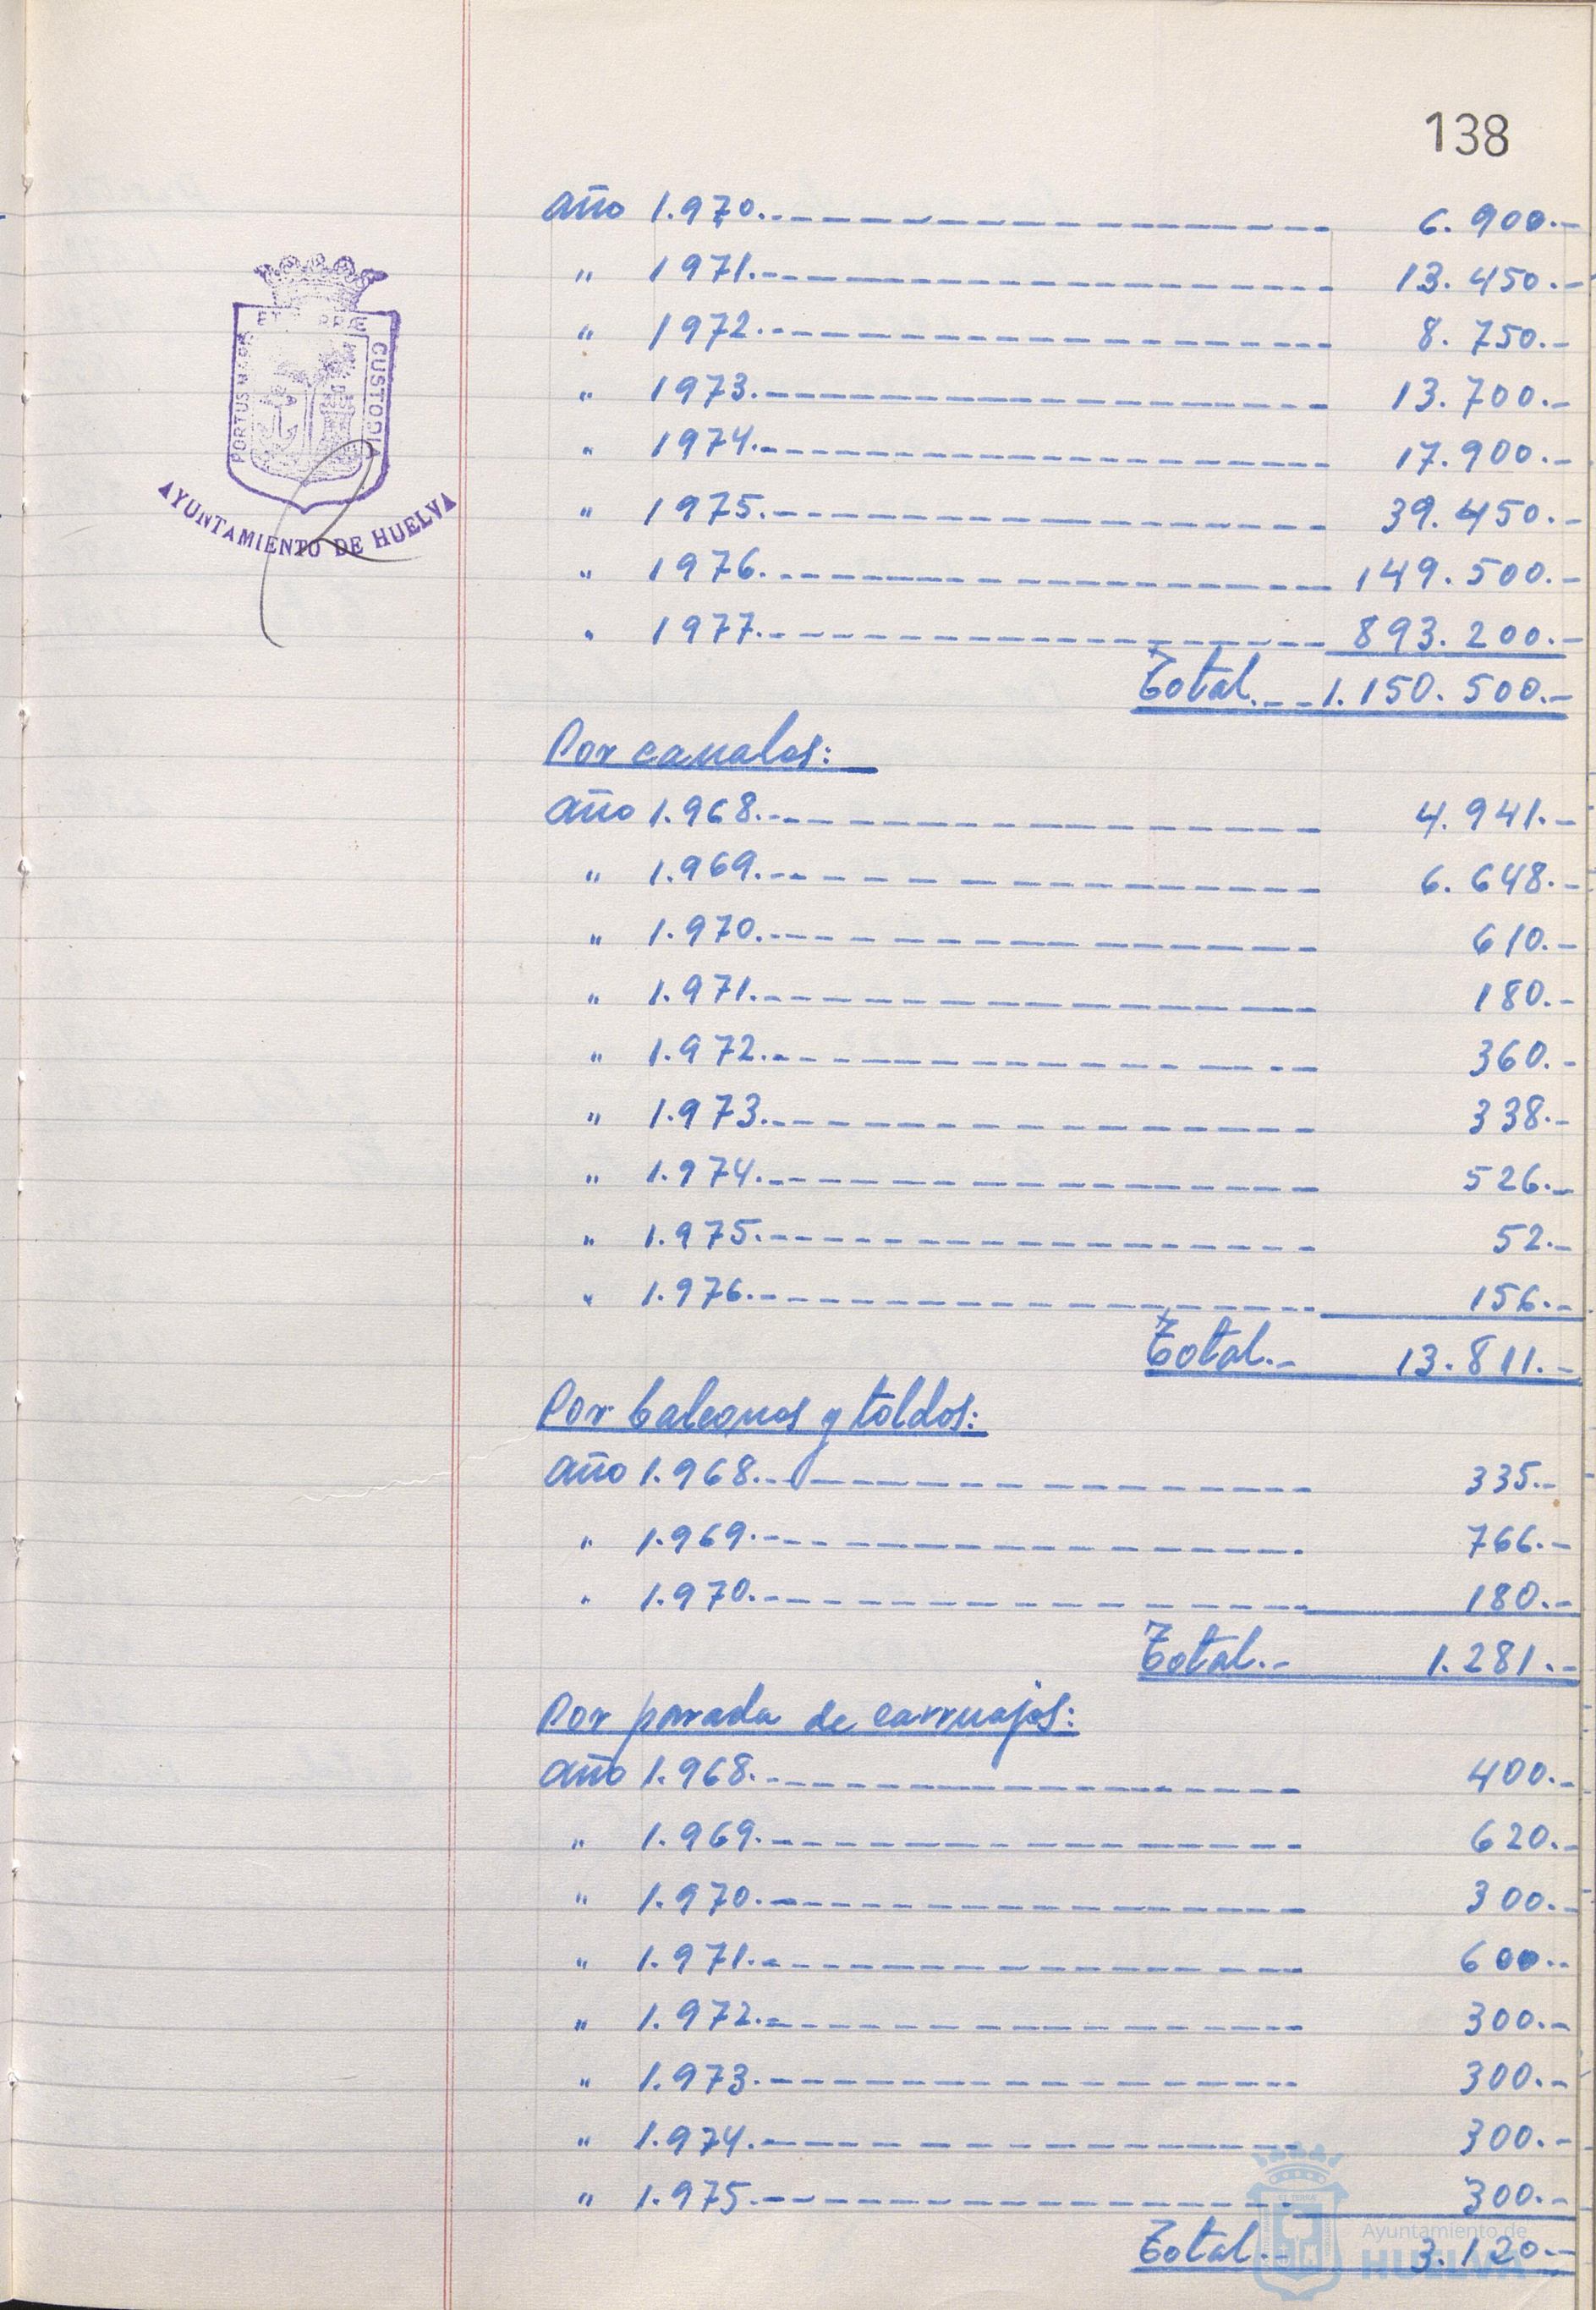 138
año 1.970.- 6.900.-
" 1971.- 13.450.-
" 1972.- 8.750.-
" 1973.- 13.700.-
" 1974.- 17.900.-
" 1975.- 39.450.-
" 1976.- 149.500.-
" 1977.- 893.200.-
Total.- 1.150.500.-
PORTUS MARIS ET RRÆ CUSTODIA
AYUNTAMIENTO DE HUELVA
Por canales:
año 1.968.- 4.941.-
" 1.969.- 6.648.-
" 1.970.- 610.-
" 1.971.- 180.-
" 1.972.- 360.-
" 1.973.- 338.-
" 1.974.- 526.-
" 1.975.- 52.-
" 1.976.- 156.-
Total.- 13.811.-
Por balcones y toldos:
año 1.968.- 335.-
" 1.969.- 766.-
" 1.970.- 180.-
Total.- 1.281.-
Por parada de carruajes:
año 1.968.- 400.-
" 1.969.- 620.-
" 1.970.- 300.-
" 1.971.- 600.-
" 1.972.- 300.-
" 1.973.- 300.-
" 1.974.- 300.-
" 1.975.- 300.-
Total.- 3.120.-
Ayuntamiento de
HUELVA